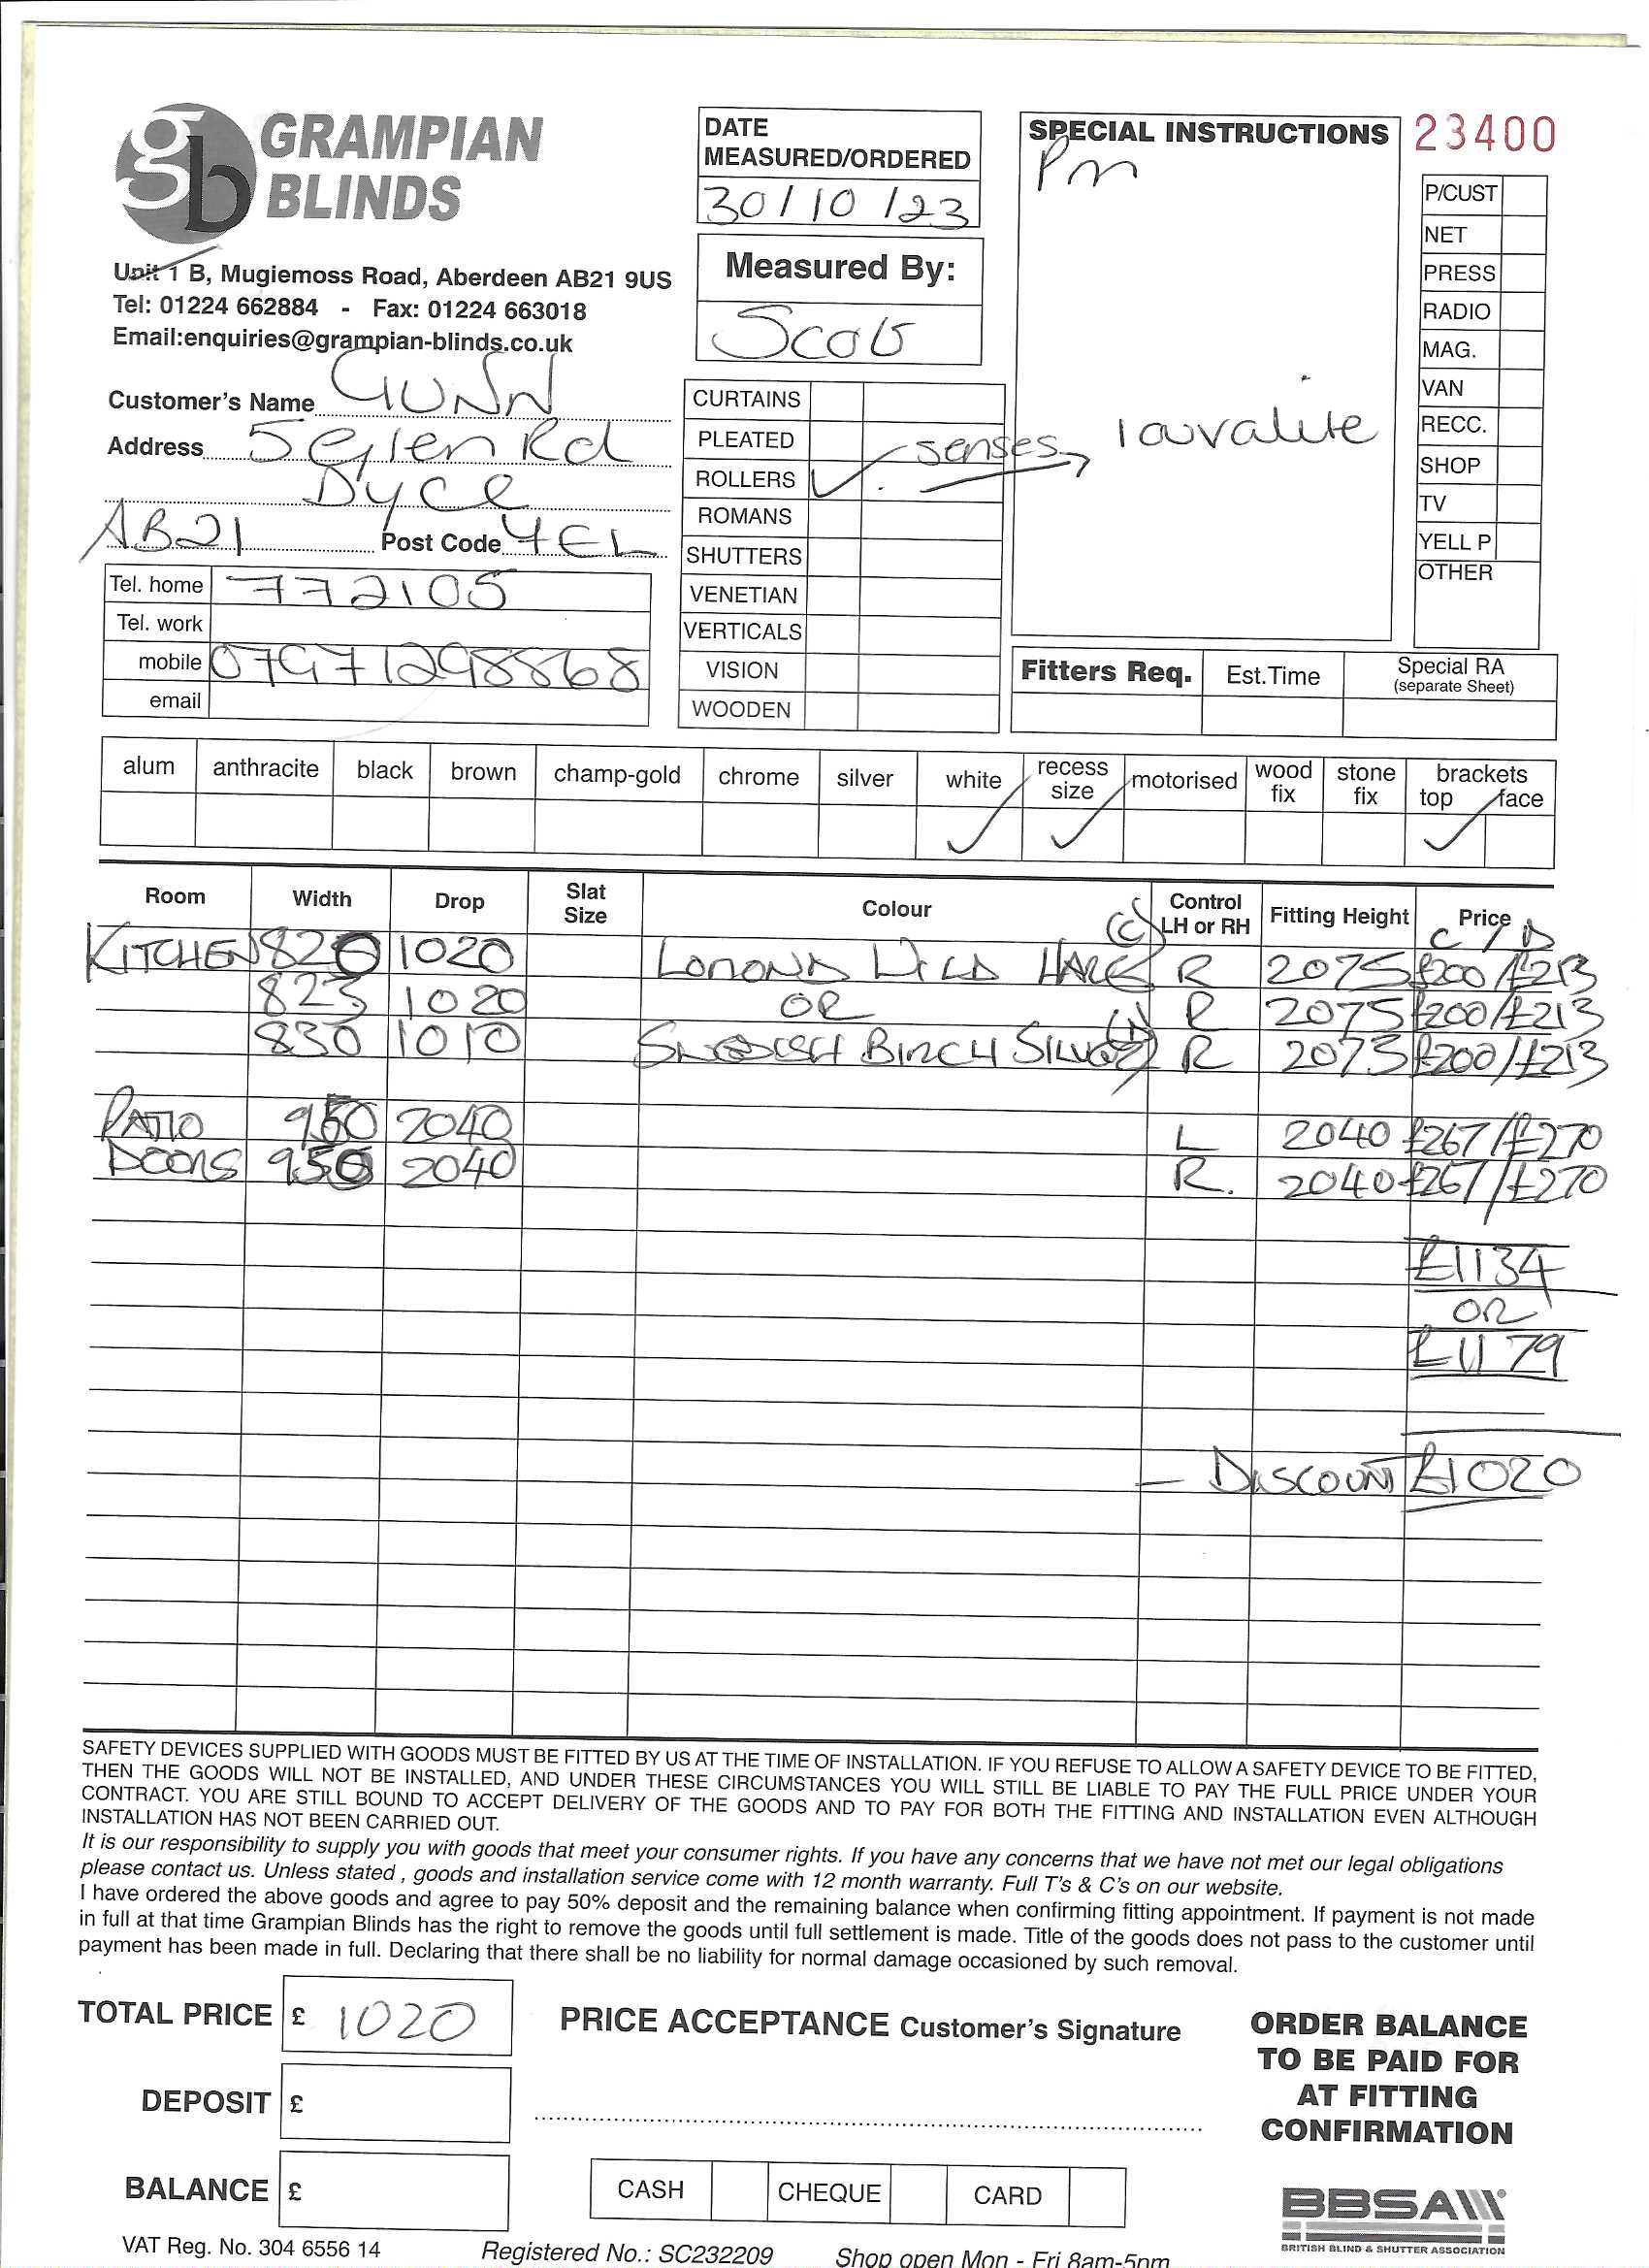 gb GRAMPIAN
BLINDS
Unit 1 B, Mugiemoss Road, Aberdeen AB21 9US
Tel: 01224 662884 - Fax: 01224 663018
Email:enquiries@grampian-blinds.co.uk
Customer's Name GUNN
Address 5 Glen Rd
Dyce
AB21 Post Code 4EL
Tel. home 772105
Tel. work
mobile 07971298868
email
DATE
MEASURED/ORDERED
30/10/23
Measured By:
Scott
CURTAINS
PLEATED
ROLLERS ✓ senses
ROMANS
SHUTTERS
VENETIAN
VERTICALS
VISION
WOODEN
SPECIAL INSTRUCTIONS
Pm
louvalite
23400
P/CUST
NET
PRESS
RADIO
MAG.
VAN
RECC.
SHOP
TV
YELL P
OTHER
Fitters Req. Est.Time Special RA
(separate Sheet)
alum anthracite black brown champ-gold chrome silver white recess size motorised wood fix stone fix brackets top face
✓ ✓ ✓
Room Width Drop Slat Size Colour Control LH or RH Fitting Height Price
(C) C / D
KITCHEN 820 1020 LOMOND WILD HARE R 2075 £200/£213
823 1020 OR R 2075 £200/£213
830 1010 SWEDISH BIRCH SILVER R 2075 £200/£213
PATIO 950 2040 L 2040 £267/£270
DOORS 950 2040 R. 2040 £267/£270
£1134
OR
£1179
- DISCOUNT £1020
SAFETY DEVICES SUPPLIED WITH GOODS MUST BE FITTED BY US AT THE TIME OF INSTALLATION. IF YOU REFUSE TO ALLOW A SAFETY DEVICE TO BE FITTED,
THEN THE GOODS WILL NOT BE INSTALLED, AND UNDER THESE CIRCUMSTANCES YOU WILL STILL BE LIABLE TO PAY THE FULL PRICE UNDER YOUR
CONTRACT. YOU ARE STILL BOUND TO ACCEPT DELIVERY OF THE GOODS AND TO PAY FOR BOTH THE FITTING AND INSTALLATION EVEN ALTHOUGH
INSTALLATION HAS NOT BEEN CARRIED OUT.
It is our responsibility to supply you with goods that meet your consumer rights. If you have any concerns that we have not met our legal obligations
please contact us. Unless stated , goods and installation service come with 12 month warranty. Full T's & C's on our website.
I have ordered the above goods and agree to pay 50% deposit and the remaining balance when confirming fitting appointment. If payment is not made
in full at that time Grampian Blinds has the right to remove the goods until full settlement is made. Title of the goods does not pass to the customer until
payment has been made in full. Declaring that there shall be no liability for normal damage occasioned by such removal.
TOTAL PRICE £ 1020
DEPOSIT £
BALANCE £
PRICE ACCEPTANCE Customer's Signature
CASH CHEQUE CARD
ORDER BALANCE
TO BE PAID FOR
AT FITTING
CONFIRMATION
BBSA
BRITISH BLIND & SHUTTER ASSOCIATION
VAT Reg. No. 304 6556 14 Registered No.: SC232209 Shop open Mon - Fri 8am-5pm